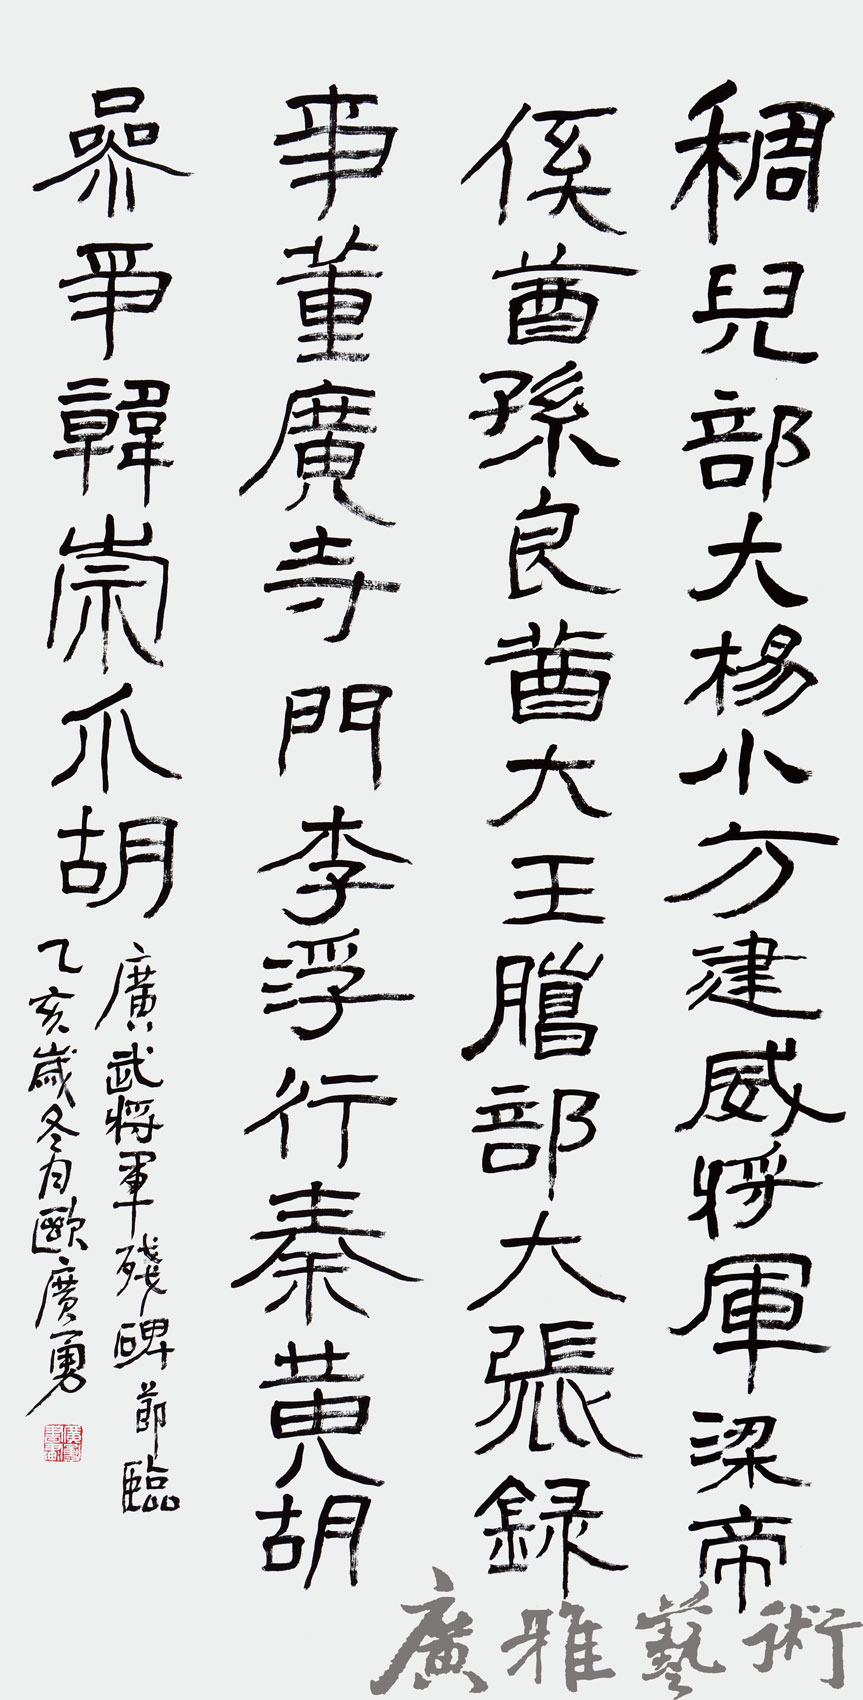 稠兒部大楊小方建威將軍梁帝
侯酋孫良酋大王騰部大張錄
事董廣寺門李浮行秦黃胡
參事韓崇爪胡
廣武將軍殘碑節臨
乙亥歲冬月歐廣勇
廣雅藝術